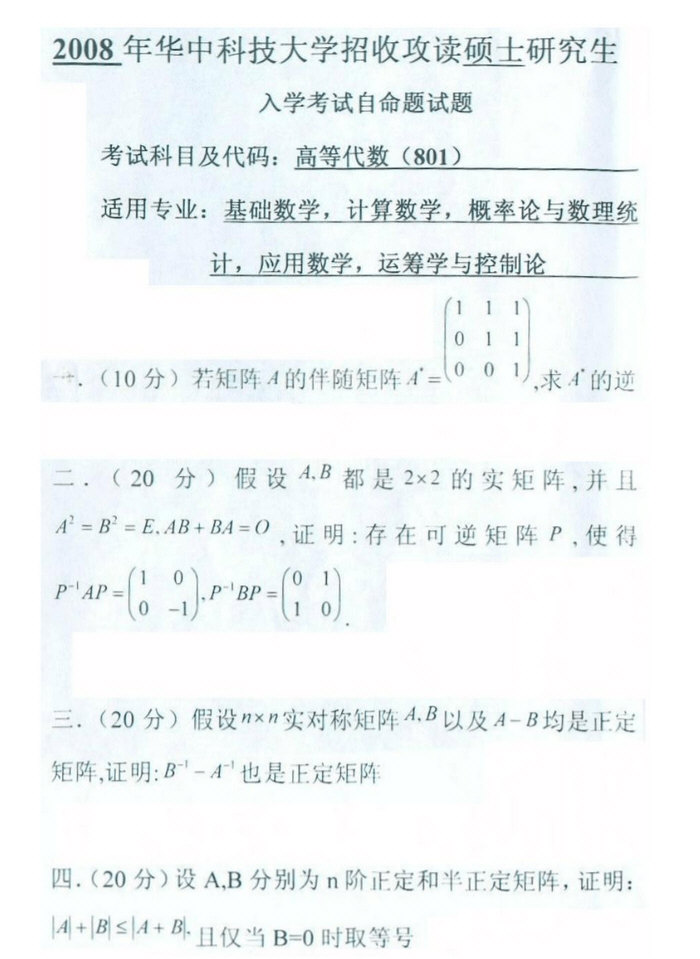 2008 年华中科技大学招收攻读硕士研究生
入学考试自命题试题
考试科目及代码：高等代数（801）
适用专业：基础数学，计算数学，概率论与数理统
计，应用数学，运筹学与控制论
一.（10 分）若矩阵 A 的伴随矩阵 A* = (1 1 1; 0 1 1; 0 0 1) ,求 A* 的逆
二.（20 分）假设 A,B 都是 2×2 的实矩阵,并且
A² = B² = E, AB + BA = O ,证明:存在可逆矩阵 P ,使得
P⁻¹AP = (1 0; 0 −1), P⁻¹BP = (0 1; 1 0).
三.（20 分）假设 n×n 实对称矩阵 A,B 以及 A−B 均是正定
矩阵,证明: B⁻¹ − A⁻¹ 也是正定矩阵
四.（20 分）设 A,B 分别为 n 阶正定和半正定矩阵，证明：
|A|+|B| ≤ |A + B|. 且仅当 B=0 时取等号